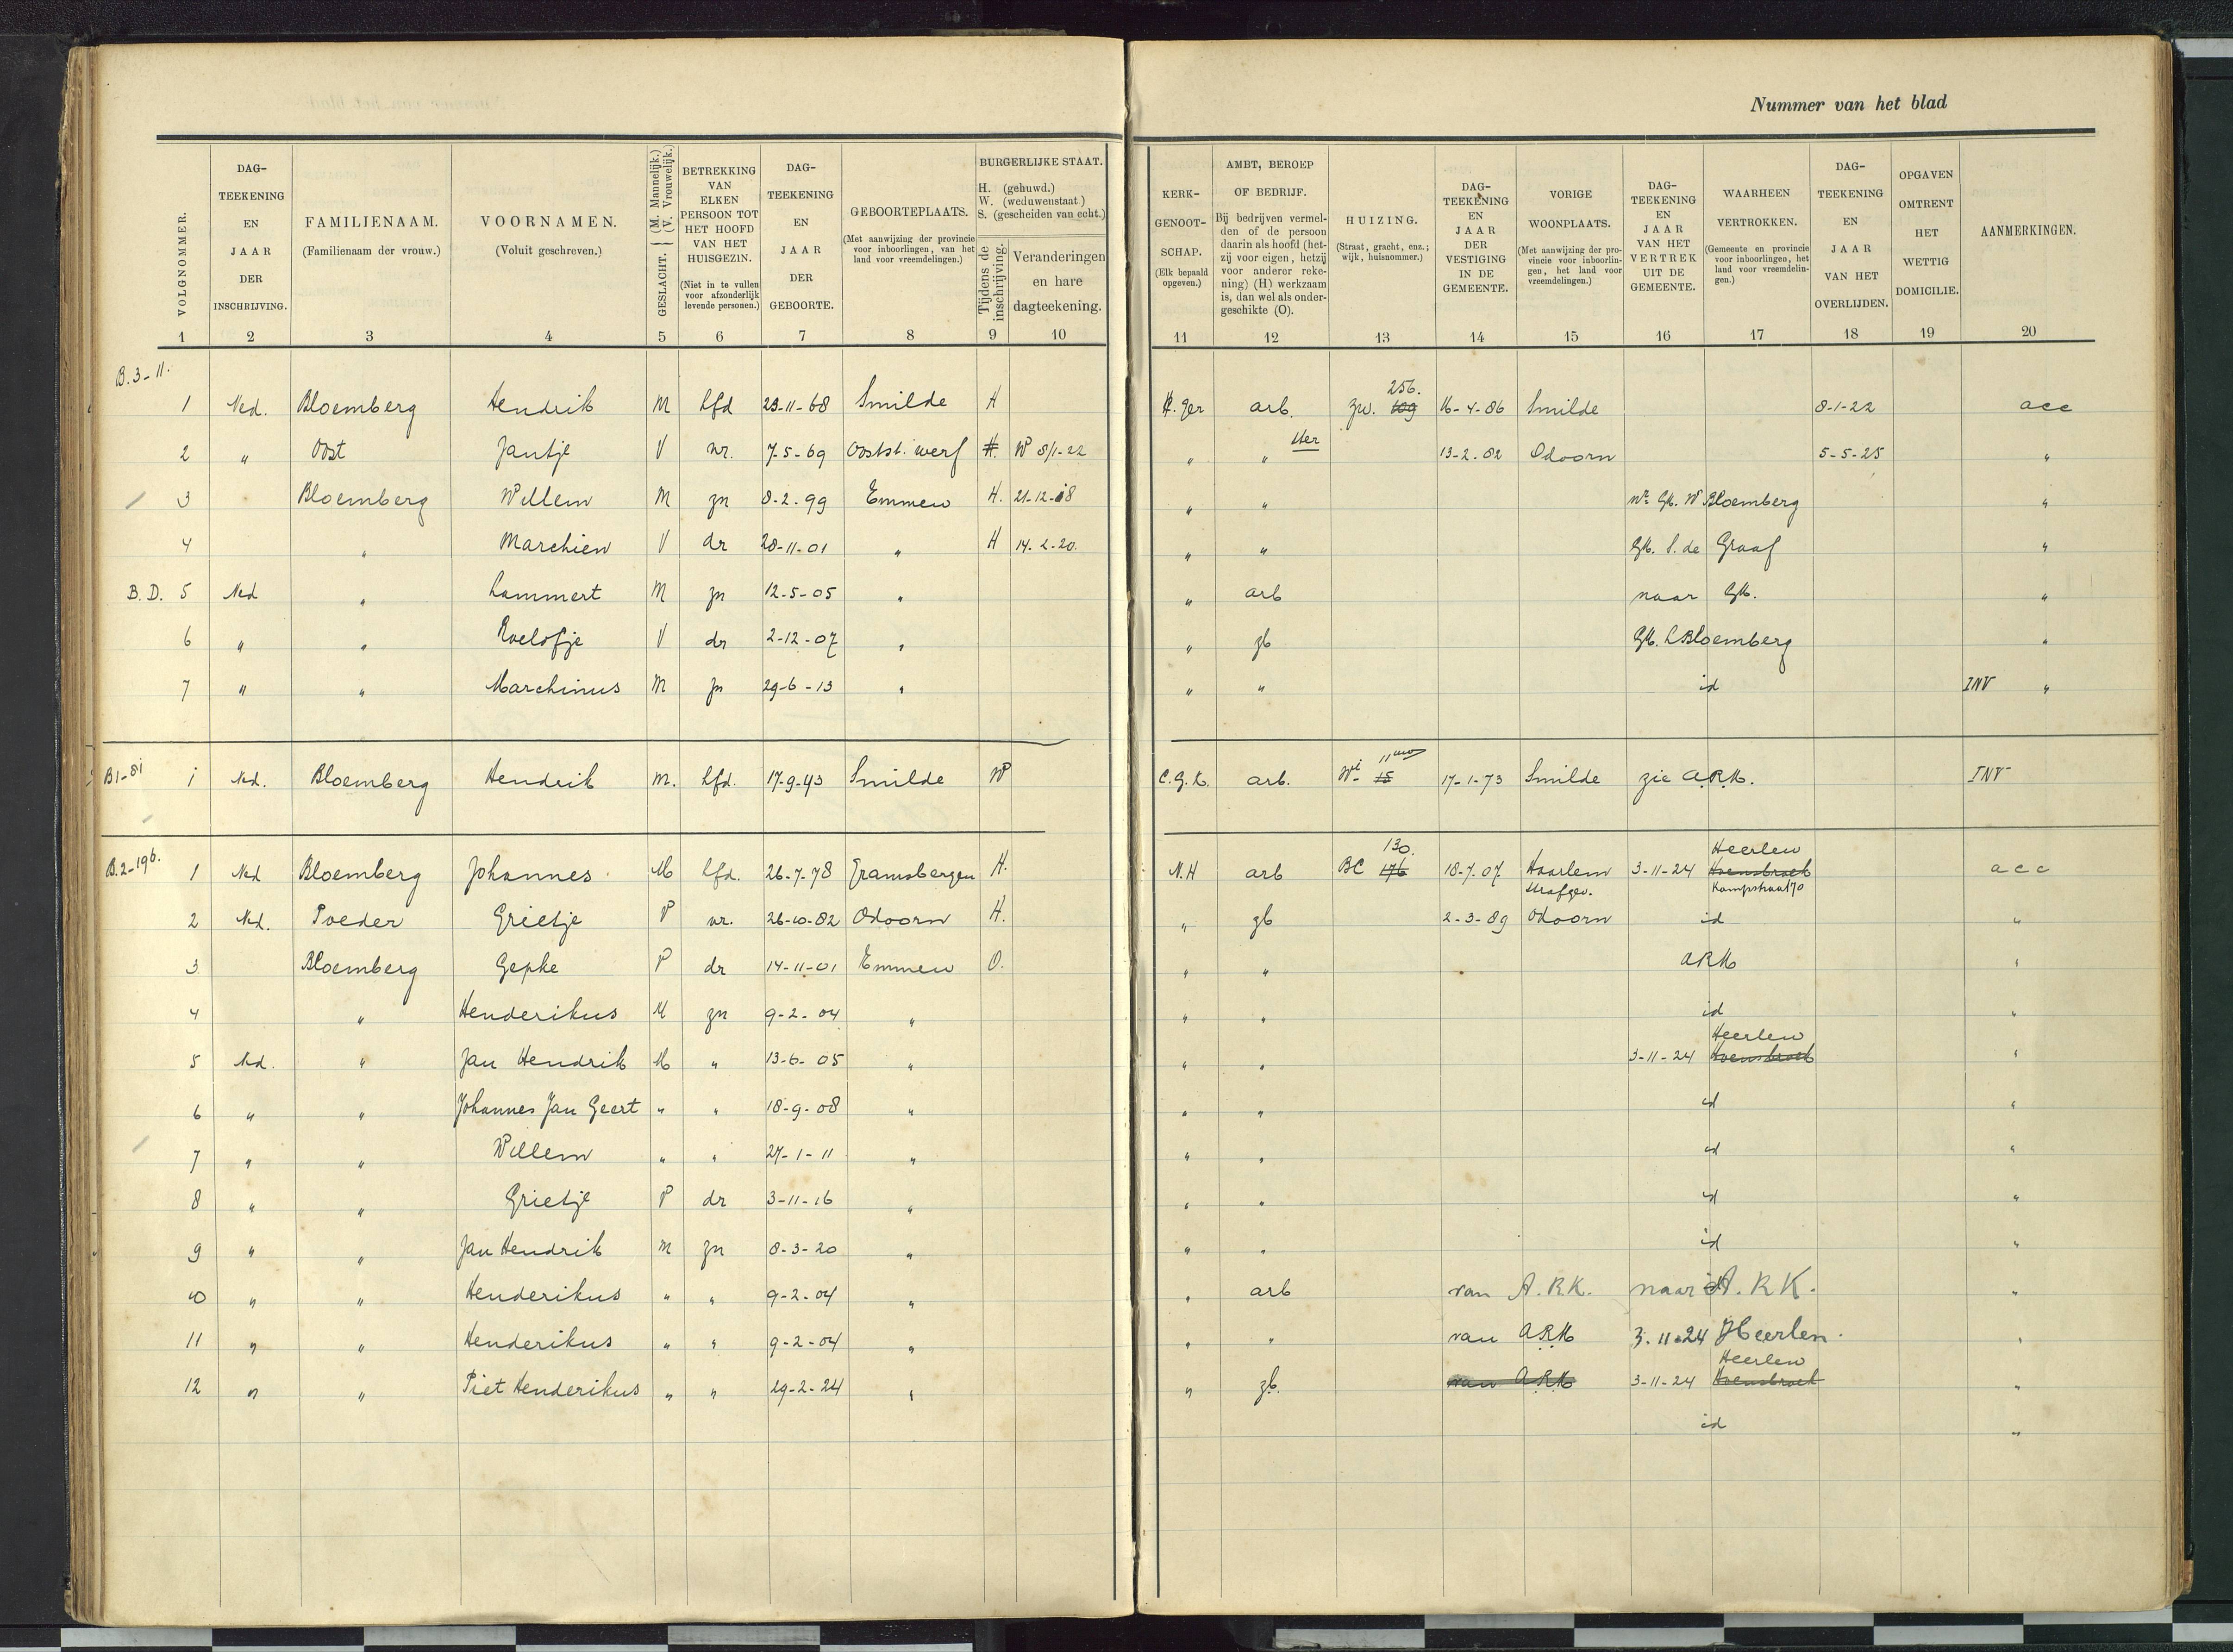 Nummer van het blad
VOLGNOMMER. 1
DAG-TEEKENING EN JAAR DER INSCHRIJVING. 2
FAMILIENAAM. (Familienaam der vrouw.) 3
VOORNAMEN. (Voluit geschreven.) 4
GESLACHT. { (M. Mannelijk.) (V. Vrouwelijk.) 5
BETREKKING VAN ELKEN PERSOON TOT HET HOOFD VAN HET HUISGEZIN. (Niet in te vullen voor afzonderlijk levende personen.) 6
DAG-TEEKENING EN JAAR DER GEBOORTE. 7
GEBOORTEPLAATS. (Met aanwijzing der provincie voor inboorlingen, van het land voor vreemdelingen.) 8
BURGERLIJKE STAAT. H. (gehuwd.) W. (weduwenstaat) S. (gescheiden van echt.)
Tijdens de inschrijving. 9
Veranderingen en hare dagteekening. 10
KERK-GENOOT-SCHAP. (Elk bepaald opgeven.) 11
AMBT, BEROEP OF BEDRIJF. Bij bedrijven vermelden of de persoon daarin als hoofd (hetzij voor eigen, hetzij voor anderer rekening) (H) werkzaam is, dan wel als ondergeschikte (O). 12
HUIZING. (Straat, gracht, enz.; wijk, huisnommer.) 13
DAG-TEEKENING EN JAAR DER VESTIGING IN DE GEMEENTE. 14
VORIGE WOONPLAATS. (Met aanwijzing der provincie voor inboorlingen, het land voor vreemdelingen.) 15
DAG-TEEKENING EN JAAR VAN HET VERTREK UIT DE GEMEENTE. 16
WAARHEEN VERTROKKEN. (Gemeente en provincie voor inboorlingen, het land voor vreemdelingen.) 17
DAG-TEEKENING EN JAAR VAN HET OVERLIJDEN. 18
OPGAVEN OMTRENT HET WETTIG DOMICILIE. 19
AANMERKINGEN. 20
B.3-11.
256.
1 Ned. Bloemberg Hendrik M hfd 23-11-68 Smilde H K. ger arb. zw. 109 16-4-86 Smilde 8-1-22 acc
2 " Oost Jantje V vr. 7-5-69 Ooststwerf H. W 8/1-22 " " 13-2-82 Odoorn 5-5-25 "
3 Bloemberg Willem M zn 8-2-99 Emmen H. 21-12-18 " " nr. GK. W Bloemberg "
4 " Marchien V dr 28-11-01 " H 14-2-20. " " GK. S. de Graaf "
B.D. 5 Ned " Lammert M zn 12-5-05 " " arb naar GK. "
6 " " Roelofje V dr 2-12-07 " " zb GK. L Bloemberg "
7 " " Marchinus M zn 29-6-13 " " " id INV "
B1-81 1 Ned. Bloemberg Hendrik M. hfd. 17-9-43 Smilde W C.G.K. arb. 15 17-1-73 Smilde zie ARK. INV
130. Heerlen
B.2-196. 1 Ned Bloemberg Johannes M hfd. 26-7-78 Gramsbergen H. N.H arb BC 176 18-7-07 Haarlem 3-11-24 Hoensbroek acc
Strafgev. Kampstraat 70
2 Ned. Poeder Grietje V vr. 26-10-82 Odoorn H. " zb 2-3-89 Odoorn id "
3 Bloemberg Gepke V dr 14-11-01 Emmen O. " " ARK "
4 " Henderikus M zn 9-2-04 " " " id "
Heerlen
5 Ned. " Jan Hendrik M " 13-6-05 " " " 3-11-24 Hoensbroek "
6 " " Johannes Jan Geert " " 18-9-08 " " " id "
7 " " Willem " " 27-1-11 " " " id "
8 " " Grietje V dr 3-11-16 " " " id "
9 " " Jan Hendrik M zn 8-3-20 " " " id "
10 " " Henderikus " " 9-2-04 " " arb van A.R.K. naar A.R.K. "
11 " " Henderikus " " 9-2-04 " " " van ARK 3-11-24 Heerlen. "
Heerlen
12 " " Piet Henderikus " " 29-2-24 " " zb. van ARK 3-11-24 Hoensbroek "
id "